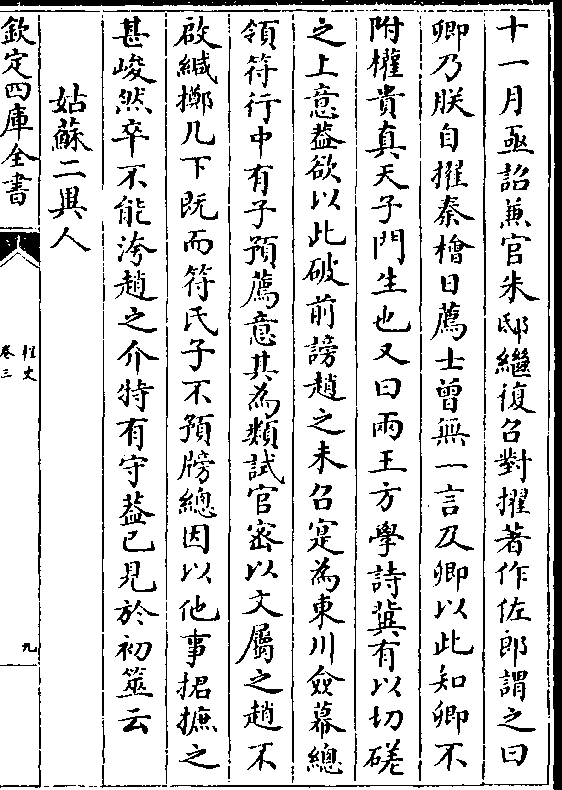 十一月亟詔兼官朱邸繼復召對擢著作佐郎謂之曰
卿乃朕自擢秦檜日薦士曾無一言及卿以此知卿不
附權貴真天子門生也又曰兩王方學詩冀有以切磋
之上意葢欲以此破前謗趙之未召寔為東川僉幕總
領符行中有子預薦意其為類試官宻以文屬之趙不
啟緘擲几下既而符氏子不預牓總因以他事捃摭之
甚峻然卒不能洿趙之介特有守葢已見於初筮云
姑蘇二異人
欽定四庫全書
桯史
卷三
九